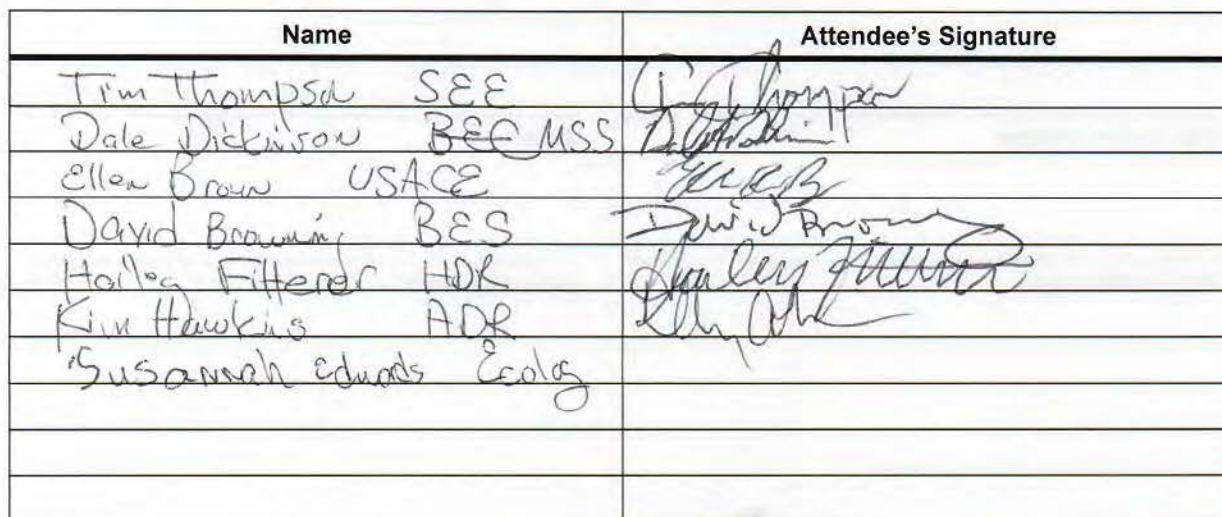 Name Attendee's Signature
Tim Thompson SEE Thompson
Dale Dickinson BEC MSS
Ellen Brown USACE
David Browning BES David Brown
Hailey Fitterer HDR
Kim Hawkins HDR
Susannah Edwards Ecology